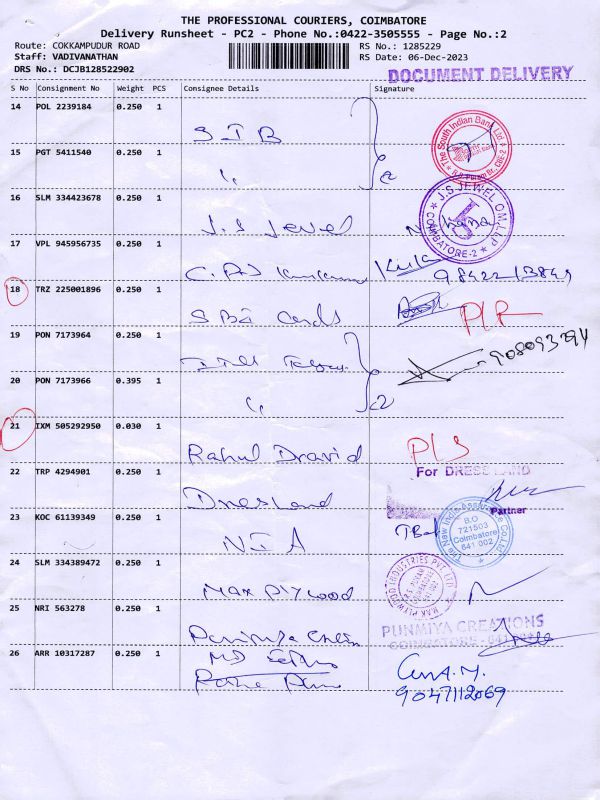 THE PROFESSIONAL COURIERS, COIMBATORE
Delivery Runsheet - PC2 - Phone No.:0422-3505555 - Page No.:2
Route: COKKAMPUDUR ROAD RS No.: 1285229
Staff: VADIVANATHAN RS Date: 06-Dec-2023
DRS No.: DCJB128522902
DOCUMENT DELIVERY
S No Consignment No Weight PCS Consignee Details Signature
14 POL 2239184 0.250 1 SIB
The South Indian Bank Ltd
15 PGT 5411540 0.250 1 "
2
16 SLM 334423678 0.250 1 J.S Jewel
J.S.JEWEL OM LLP COIMBATORE-2
17 VPL 945956735 0.250 1
18 TRZ 225001896 0.250 1 SBI Cards
19 PON 7173964 0.250 1
20 PON 7173966 0.395 1 "
2
21 IXM 505292950 0.030 1 Rahul Dravid
For DRESS LAND
Partner
22 TRP 4294901 0.250 1 Dressland
23 KOC 61139349 0.250 1 NIA
The New India Assurance Co.Ltd B.O 721503 Coimbatore 641 002
24 SLM 334389472 0.250 1 Max Plywood
25 NRI 563278 0.250 1
PUNMIYA CREATIONS
26 ARR 10317287 0.250 1
9047112069